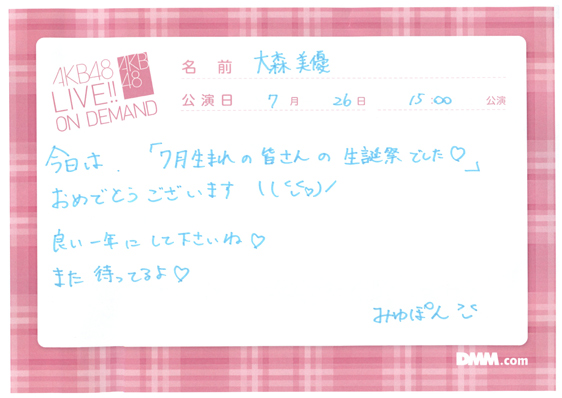 AKB48
LIVE!!
ON DEMAND
AKB
48
名 前 大森美優
公演日 7月 26日 15:00 公演
今日は、「7月生まれの皆さんの 生誕祭でした♡」
おめでとうございます
良い一年にして下さいね♡
また 待ってるよ♡
みゆぽん
DMM.com